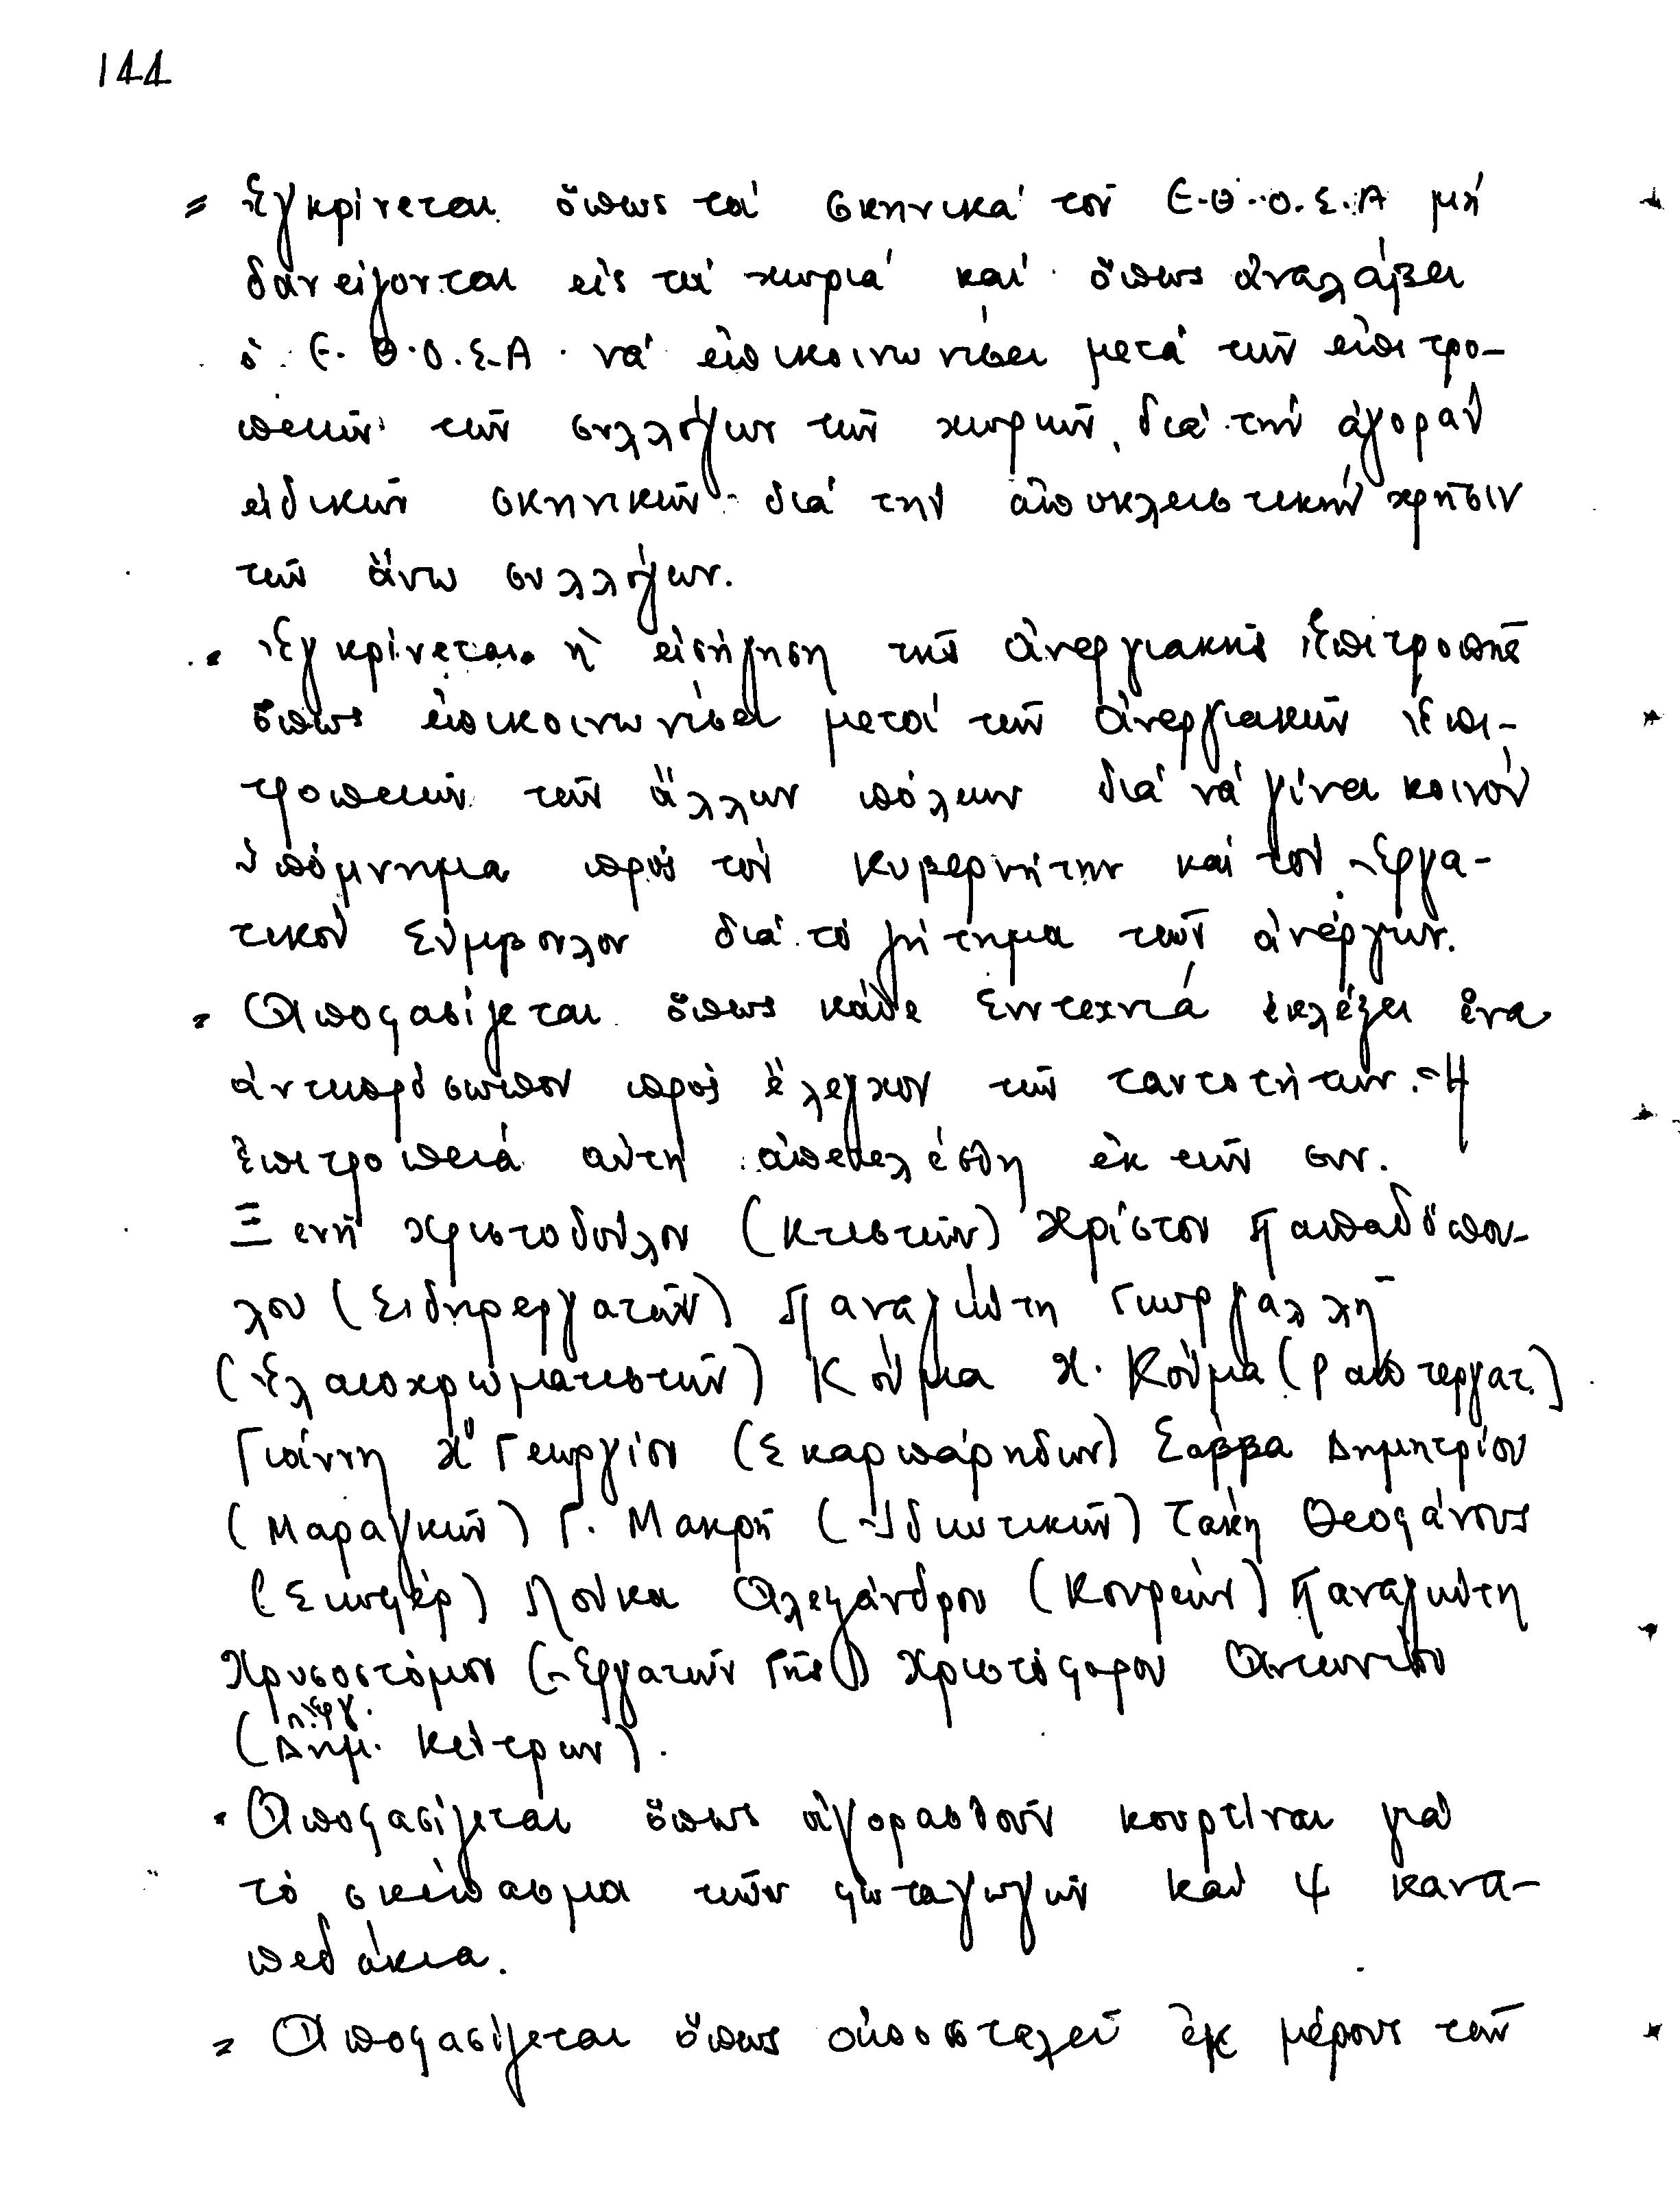 144
= Ἐγκρίνεται ὅπως τά σκηνικά τοῦ Ε.Θ.Ο.Σ.Α μή
δανείζονται εἰς τά χωριά καί ὅπως ἀναλάβει
ὁ Ε.Θ.Ο.Σ.Α. νά ἐπικοινωνίσει μετά τῶν ἐπιτρο-
πειῶν τῶν συλλόγων τῶν χωριῶν, διά τήν ἀγοράν
εἰδικῶν σκηνικῶν διά τήν ἀποκλειστικήν χρῆσιν
τῶν ἄνω συλλόγων.
= Ἐγκρίνεται ἡ εἰσήγηση τῆς Ἀνεργιακῆς Ἐπιτροπῆς
ὅπως ἐπικοινωνίσει μετά τῶν Ἀνεργιακῶν Ἐπι-
τροπειῶν τῶν ἄλλων πόλεων διά νά γίνει κοινόν
ὑπόμνημα πρός τόν Κυβερνήτην καί τόν Ἐργα-
τικόν Σύμβουλον διά τό ζήτημα τῶν ἀνέργων.
= Ἀποφασίζεται ὅπως κάθε Συντεχνιά ἐκλέξει ἕνα
ἀντιπρόσωπον πρός ἔλεγχον τῶν ταυτοτήτων. Ἡ
Ἐπιτροπειά αὐτή ἀπετελέσθη ἐκ τῶν συν.
Ξενῆ Χριστοδούλου (Κτιστῶν) Χρίστου Παπαδόπου-
λου (Σιδηρεργατῶν) Παναγιώτη Γιωργαλλῆ
(Ἐλαιοχρωματιστῶν) Κούμα Χ. Κούμα (Ραπτεργατ.)
Γιάννη Χ" Γεωργίου (Σκαρπάρηδων) Σάββα Δημητρίου
(Μαραγκῶν) Γ. Μακρῆ (Ἰδιωτικῶν) Τάκη Θεοφάνους
(Σιωφέρ) Λούκα Ἀλεξάνδρου (Κουρέων) Παναγιώτη
Χρυσοστόμου (Ἐργατῶν Γῆς) Χριστόφορου Ἀντωνίου
(Δημ. Κέντρων).
= Ἀποφασίζεται ὅπως ἀγορασθοῦν κουρτίναι γιά
τό σκέπασμα τῶν φωταγωγῶν καί 4 κανα-
πεδάκια.
= Ἀποφασίζεται ὅπως ἀποσταλεῖ ἐκ μέρους τῶν